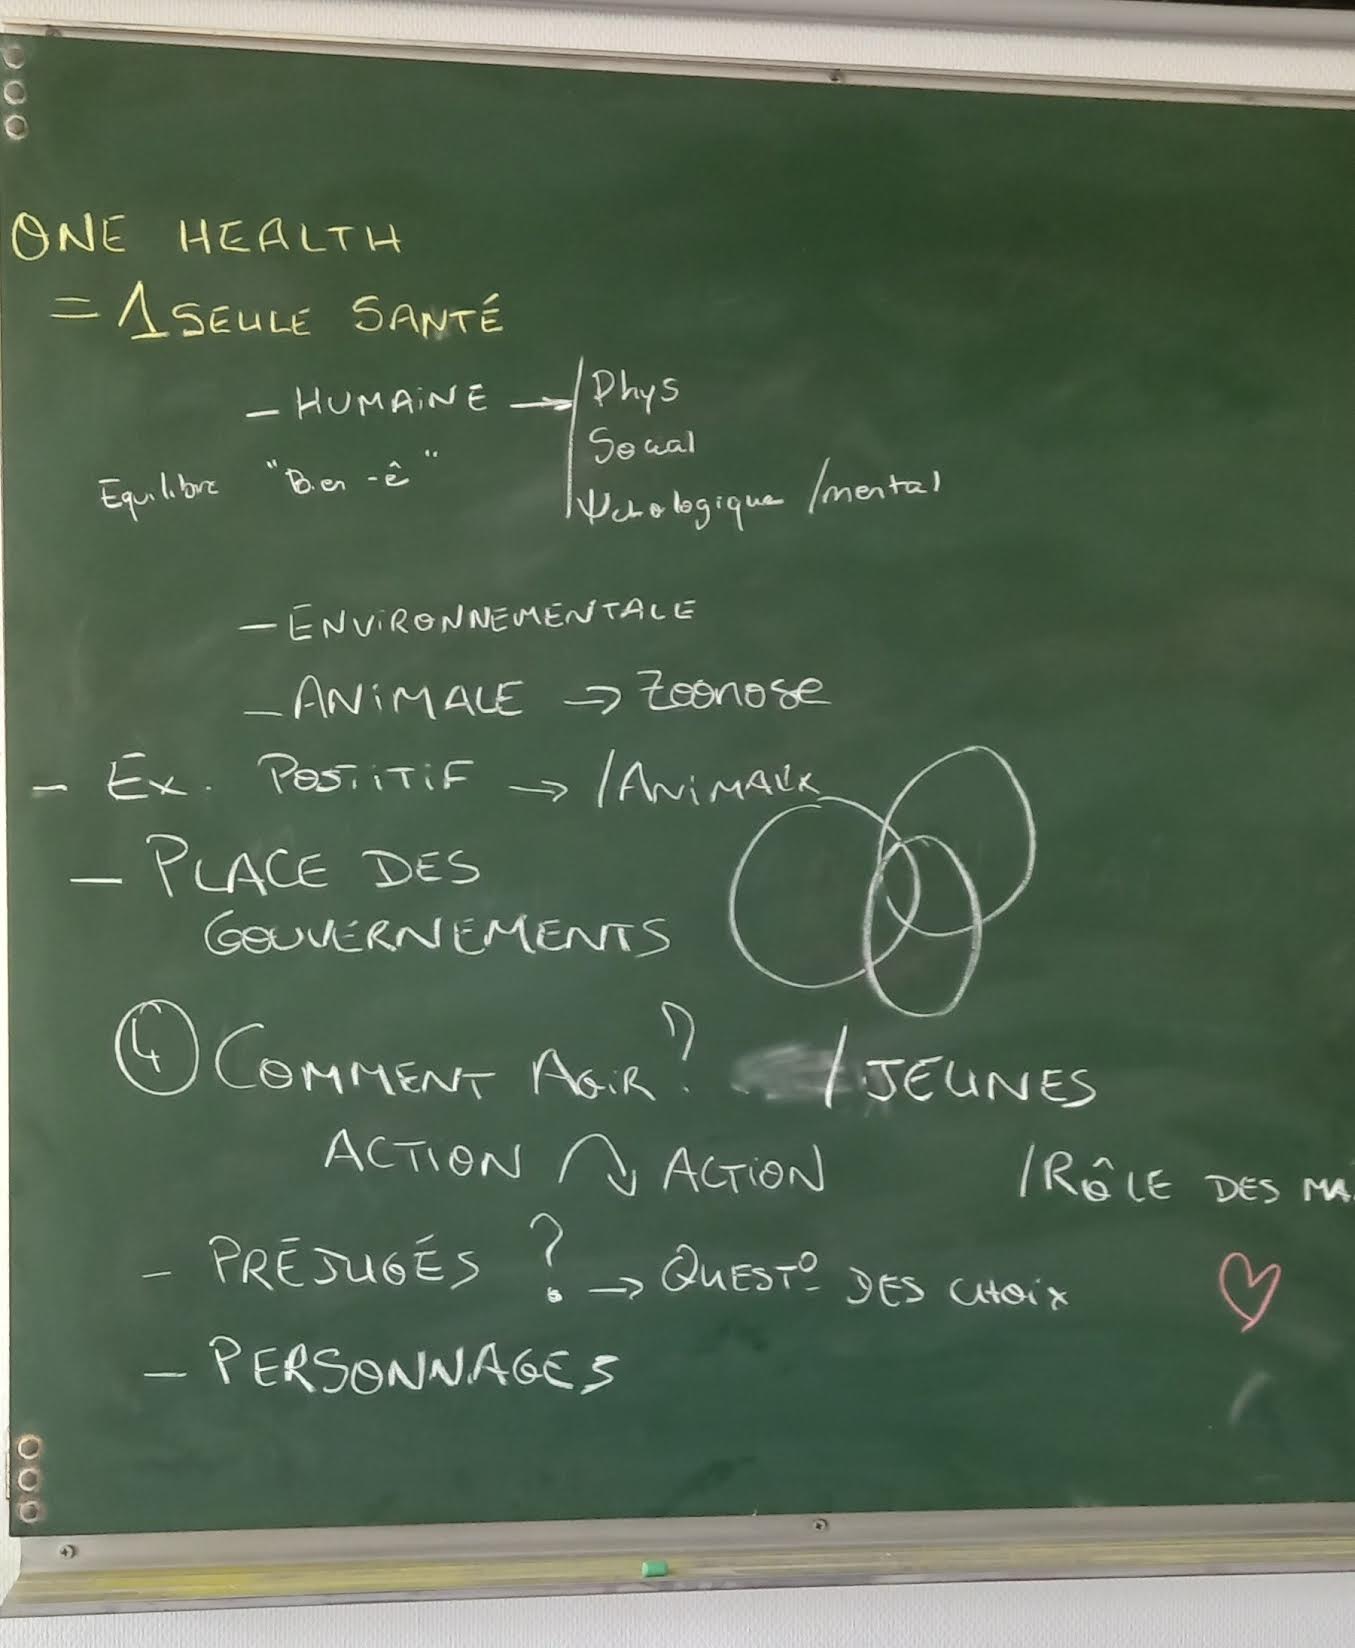 ONE HEALTH
= 1 SEULE SANTÉ
- HUMAINE → Phys
Social
Equilibre "Bien-ê"
Ψchologique /mental
- ENVIRONNEMENTALE
- ANIMALE → Zoonose
- Ex. POSITIF → /ANIMAUX
- PLACE DES
GOUVERNEMENTS
④ COMMENT AGIR? /JEUNES
ACTION ACTION
/RÔLE DES
- PRÉJUGÉS ? → QUESTº DES CHOIX
- PERSONNAGES